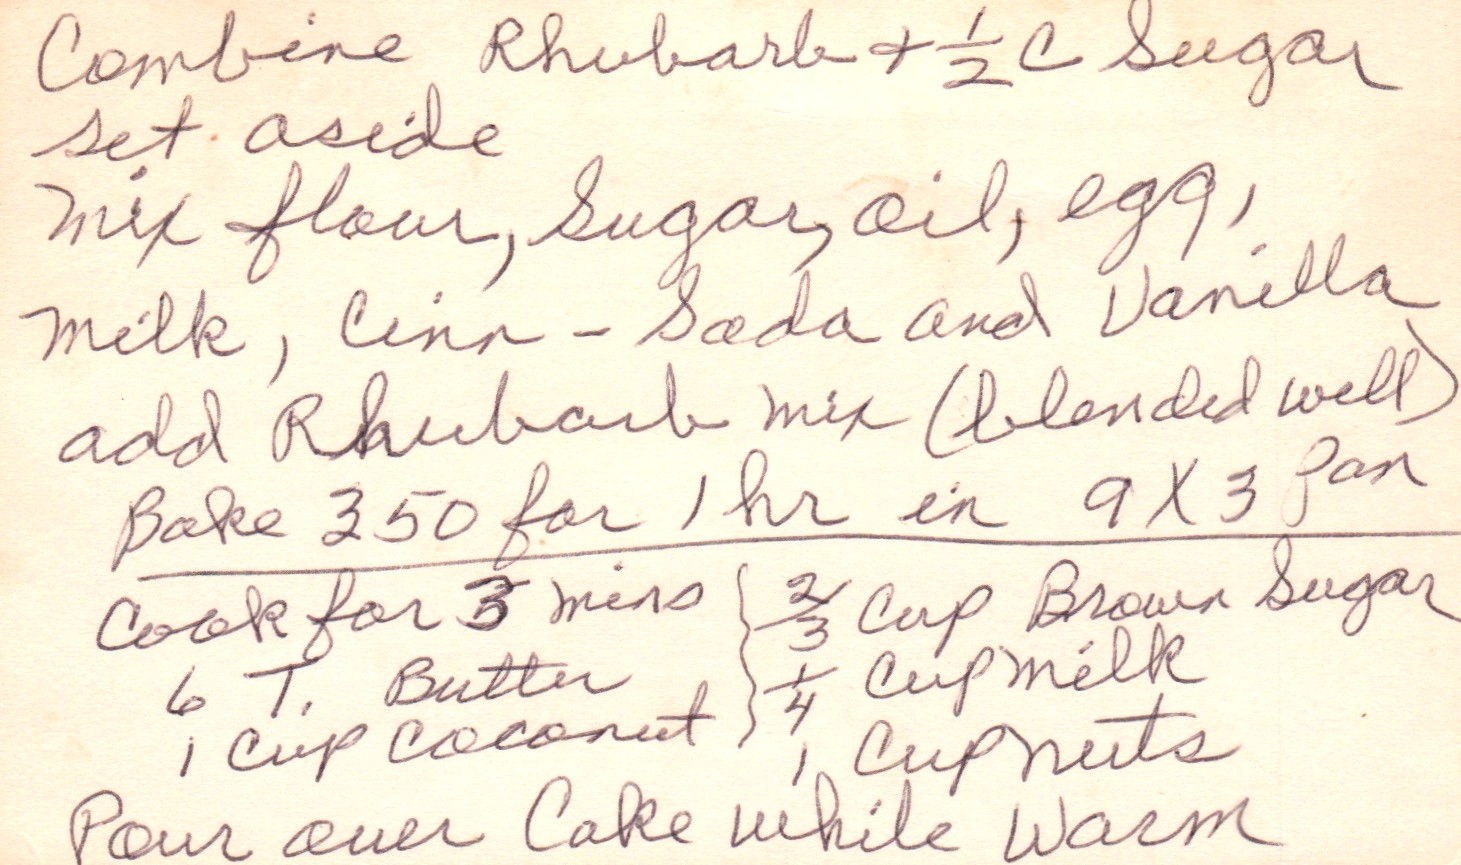 Combine Rhubarb + 1/2 C Sugar
set aside
Mix flour, Sugar, oil, egg,
Milk, Cinn - Soda and Vanilla
add Rhubarb mix (blended well)
Bake 350 for 1 hr in 9 X 3 Pan
Cook for 3 mins } 2/3 Cup Brown Sugar
6 T. Butter } 1/4 Cup Milk
1 Cup Coconut } 1 Cup nuts
Pour over Cake while Warm